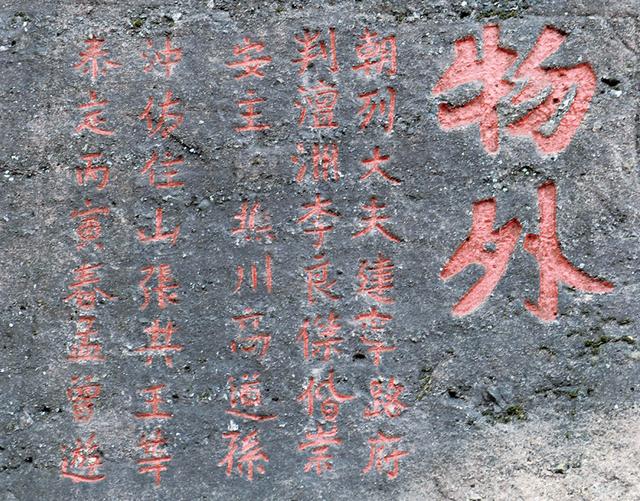 物外
朝列大夫建寧路府
判澶淵李良傑偕崇
安主樊川高道孫
沖佑住山張其王等
泰定丙寅春孟曾遊